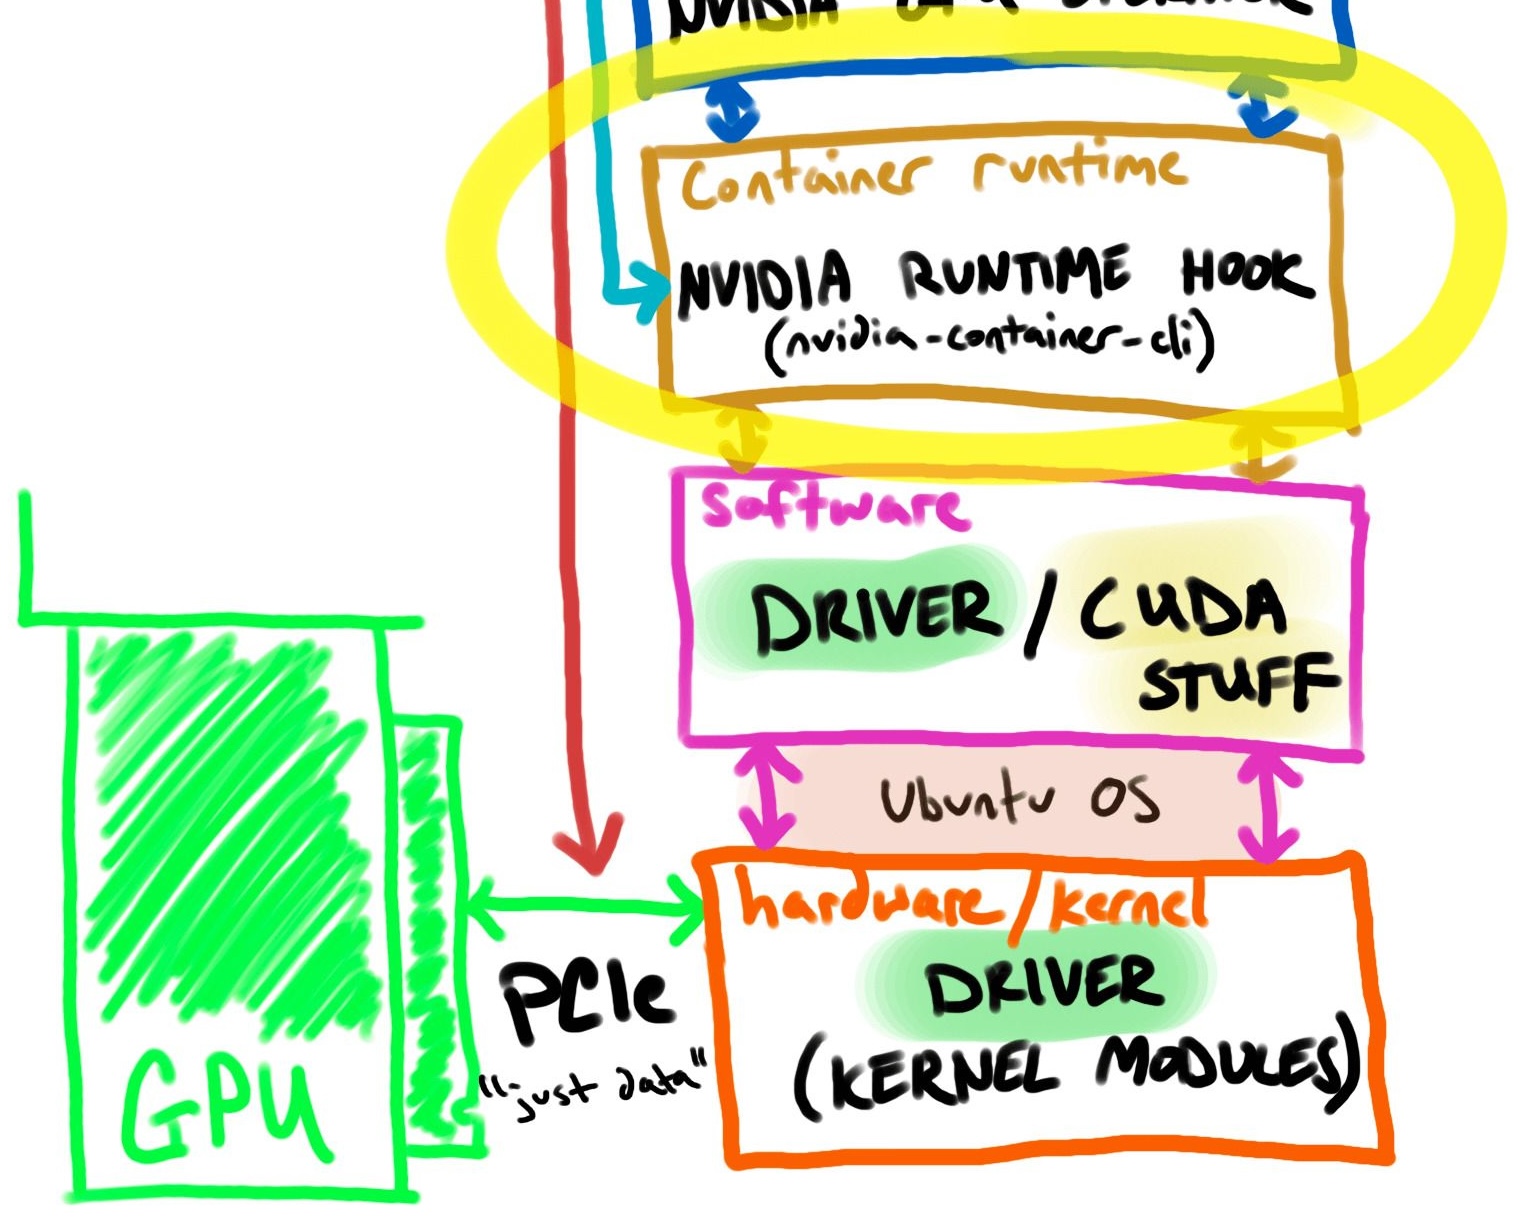 NVIDIA
Container runtime
NVIDIA RUNTIME HOOK
(nvidia-container-cli)
Software
DRIVER / CUDA
STUFF
Ubuntu OS
hardware/kernel
DRIVER
(KERNEL MODULES)
PCIe
"just data"
GPU